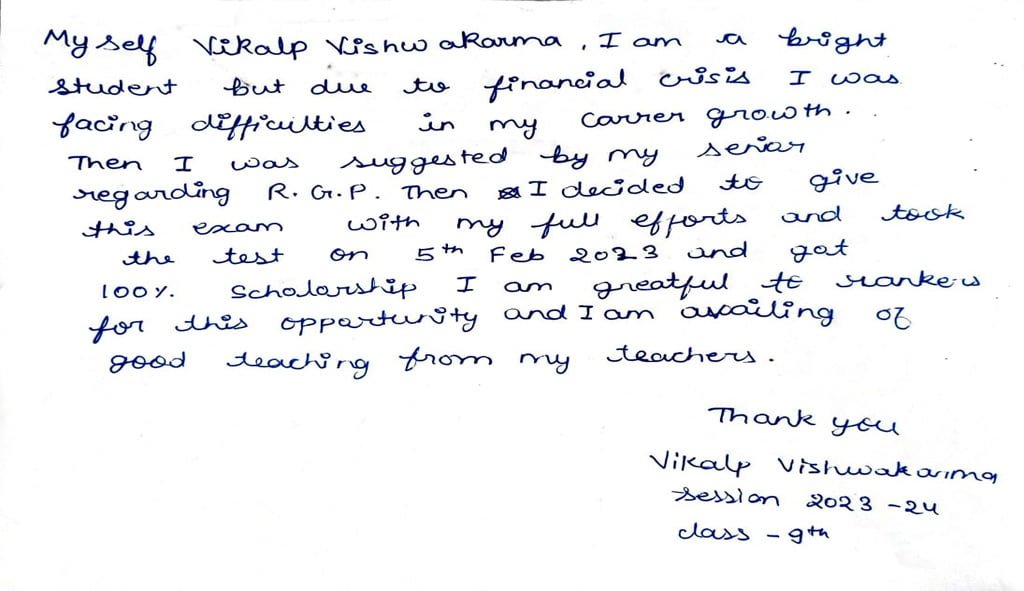 My self Vikalp Vishwakarma, I am a bright
student but due to financial crisis I was
facing difficulties in my carrer growth.
Then I was suggested by my senior
regarding R.G.P. Then I decided to give
this exam with my full efforts and took
the test on 5th Feb 2023 and got
100%. Scholarship I am greatful to rankers
for this opportunity and I am availing of
good teaching from my teachers.
Thank you
Vikalp Vishwakarma
session 2023-24
class - 9th